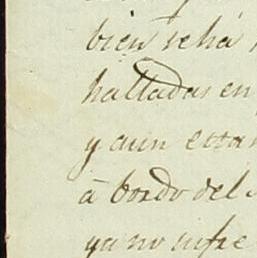 bien se ha
halladas en
y aun estan
à bordo del
ya no sufre